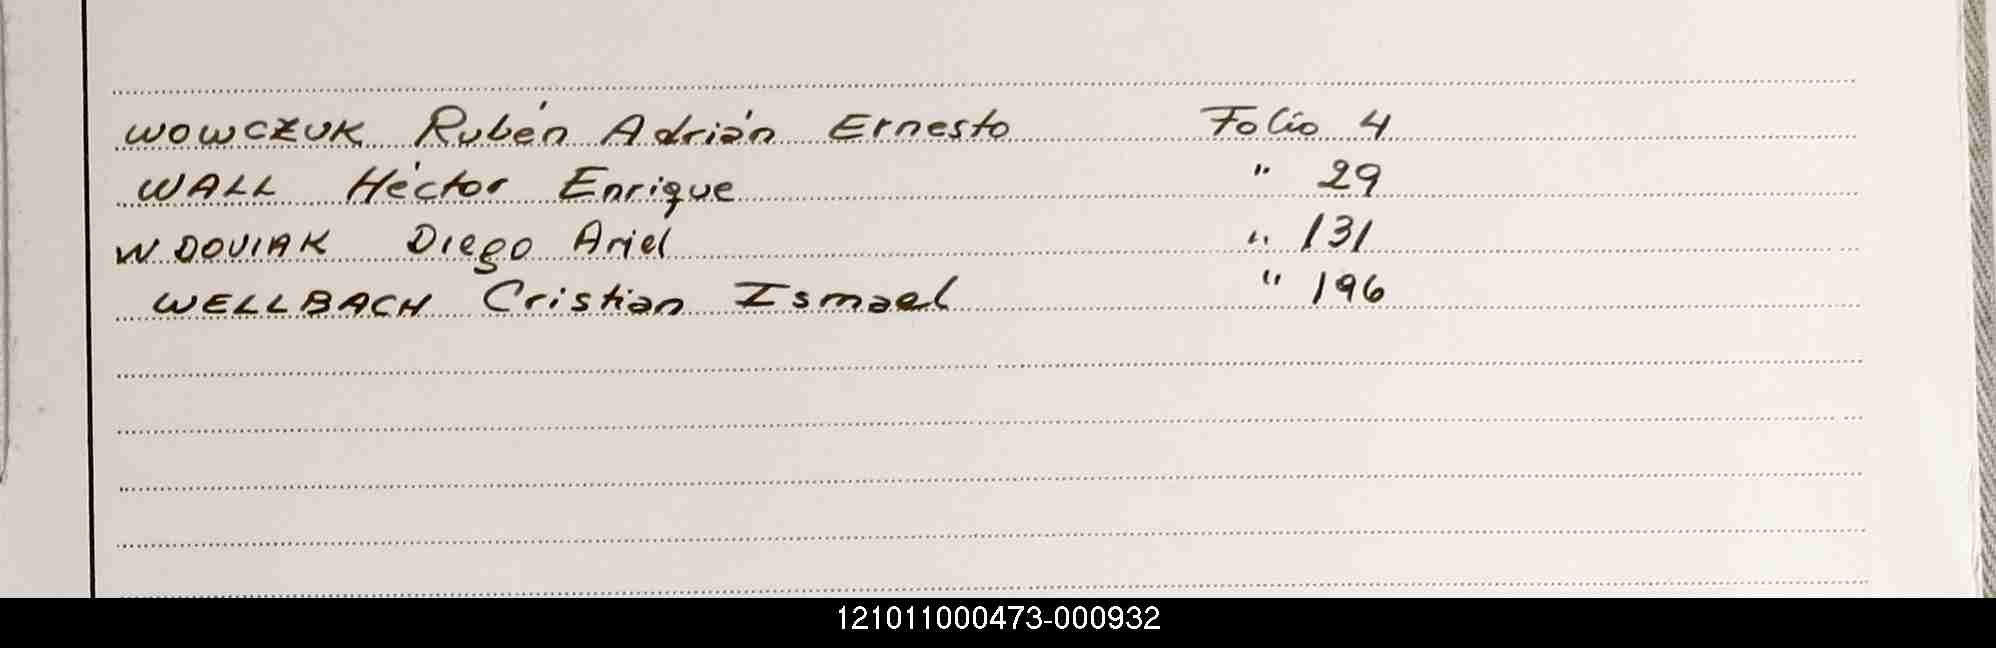 WOWCZUK Rubén Adrián Ernesto Folio 4
WALL Héctor Enrique " 29
WDOVIAK Diego Ariel " 131
WELLBACH Cristian Ismael " 196
121011000473-000932